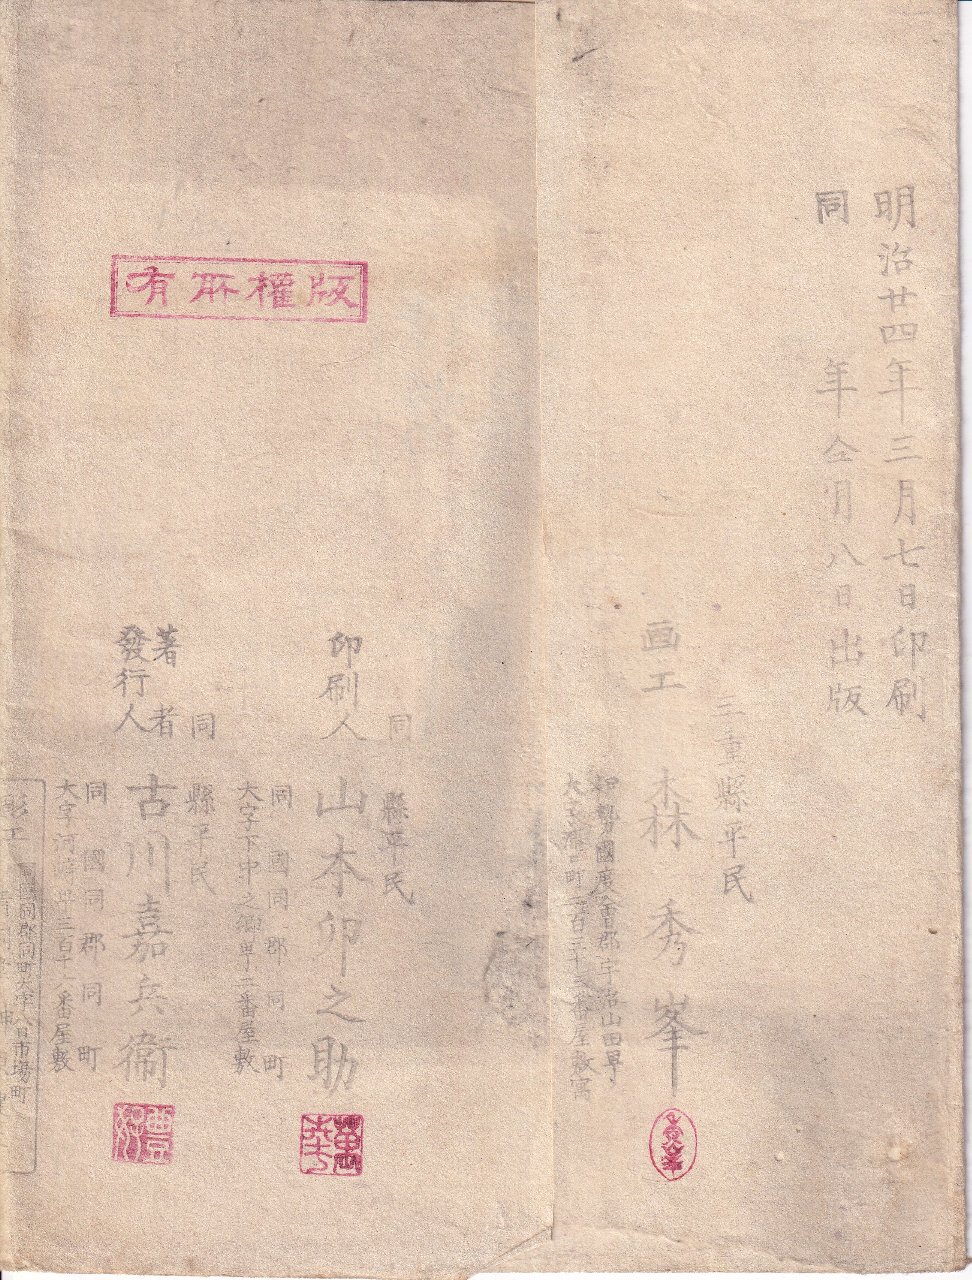 明治廿四年三月七日印刷
同年仝月八日出版
三重縣平民
画工 森秀峯
伊勢國度會郡宇治山田町
大字
町二百三十
番屋敷寓
同縣平民
印刷人 山本卯之助
同國同郡同町
大字下中之郷
番屋敷
同縣平民
著者
發行人 古川嘉兵衛
同國同郡同町
大字河﨑
三百十八番屋敷
版權所有
同國同郡同町大字八日市場町
彫工